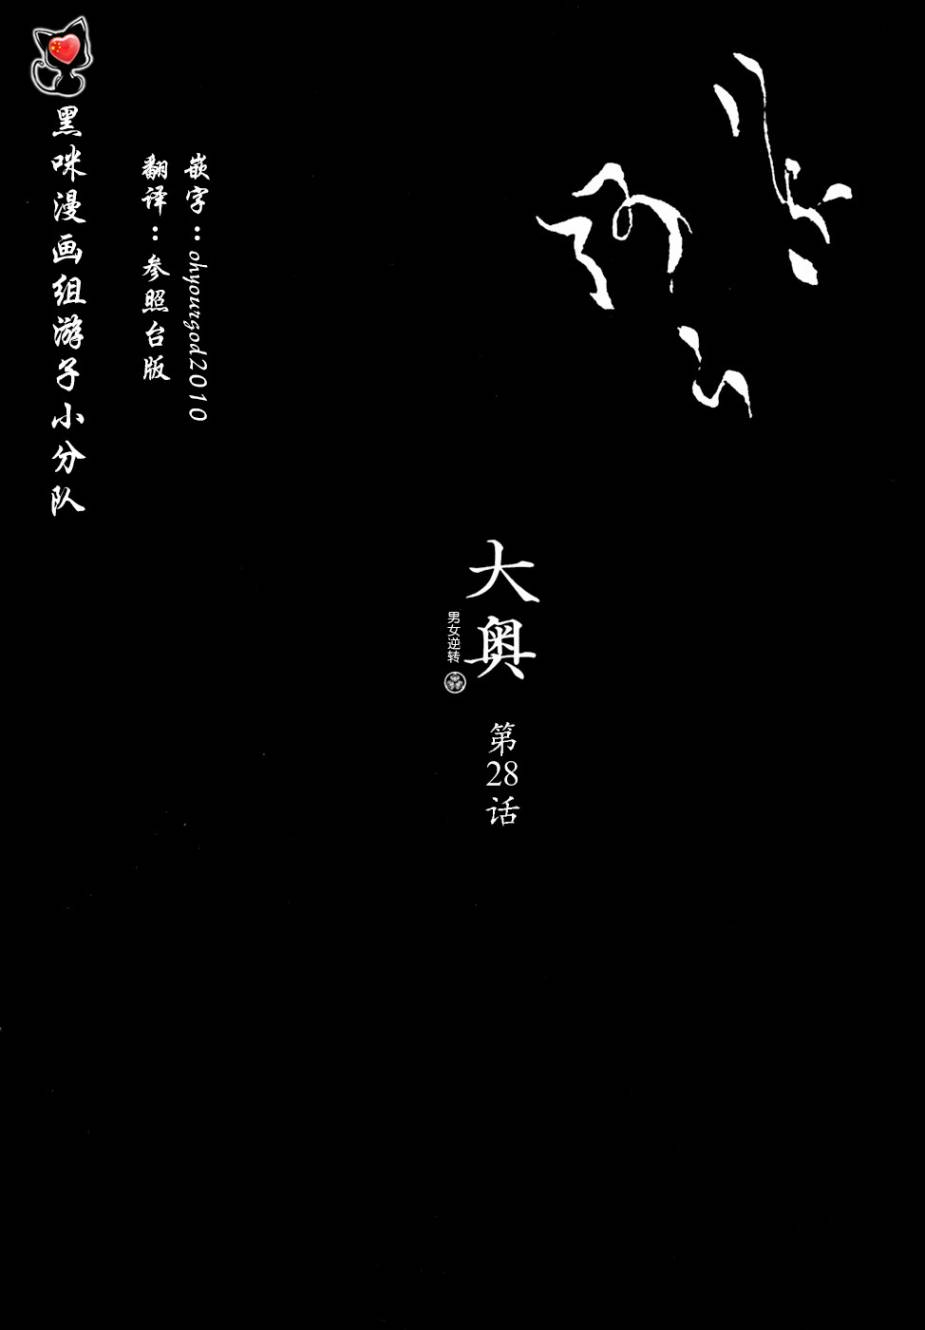 大奥
男女逆转
第28话
嵌字：ohyourgod2010
翻译：参照台版
黑咪漫画组游子小分队